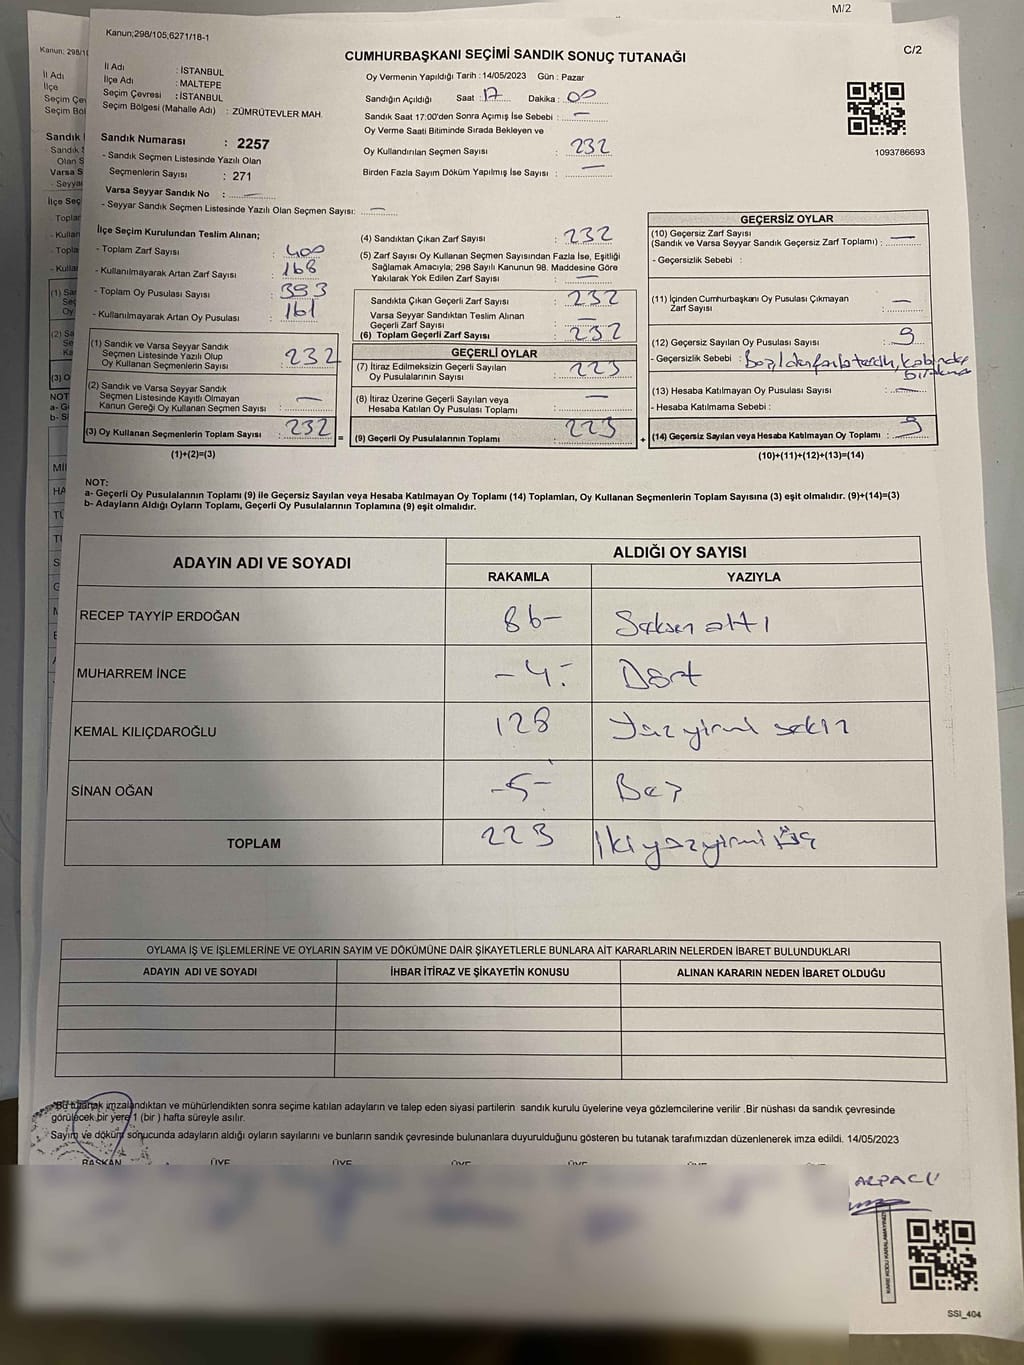 M/2
Kanun;298/105;6271/18-1
C/2
CUMHURBAŞKANI SEÇİMİ SANDIK SONUÇ TUTANAĞI
İl Adı : İSTANBUL
İlçe Adı : MALTEPE
Seçim Çevresi : İSTANBUL
Seçim Bölgesi (Mahalle Adı) : ZÜMRÜTEVLER MAH.
Oy Vermenin Yapıldığı Tarih : 14/05/2023 Gün : Pazar
Sandığın Açıldığı Saat : 17 Dakika : 00
Sandık Saat 17:00'den Sonra Açımış İse Sebebi : —
Oy Verme Saati Bitiminde Sırada Bekleyen ve
Oy Kullandırılan Seçmen Sayısı : 232
Birden Fazla Sayım Döküm Yapılmış İse Sayısı : —
1093786693
Sandık Numarası : 2257
- Sandık Seçmen Listesinde Yazılı Olan
Seçmenlerin Sayısı : 271
Varsa Seyyar Sandık No : —
- Seyyar Sandık Seçmen Listesinde Yazılı Olan Seçmen Sayısı: —
İlçe Seçim Kurulundan Teslim Alınan;
- Toplam Zarf Sayısı : 400
- Kullanılmayarak Artan Zarf Sayısı : 168
- Toplam Oy Pusulası Sayısı : 393
- Kullanılmayarak Artan Oy Pusulası : 161
(1) Sandık ve Varsa Seyyar Sandık
Seçmen Listesinde Yazılı Olup
Oy Kullanan Seçmenlerin Sayısı : 232
(2) Sandık ve Varsa Seyyar Sandık
Seçmen Listesinde Kayıtlı Olmayan
Kanun Gereği Oy Kullanan Seçmen Sayısı : —
(3) Oy Kullanan Seçmenlerin Toplam Sayısı : 232 =
(1)+(2)=(3)
(4) Sandıktan Çıkan Zarf Sayısı : 232
(5) Zarf Sayısı Oy Kullanan Seçmen Sayısından Fazla İse, Eşitliği
Sağlamak Amacıyla; 298 Sayılı Kanunun 98. Maddesine Göre
Yakılarak Yok Edilen Zarf Sayısı : —
Sandıkta Çıkan Geçerli Zarf Sayısı : 232
Varsa Seyyar Sandıktan Testim Alınan
Geçerli Zarf Sayısı : —
(6) Toplam Geçerli Zarf Sayısı : 232
GEÇERLİ OYLAR
(7) İtiraz Edilmeksizin Geçerli Sayılan
Oy Pusulalarının Sayısı : 223
(8) İtiraz Üzerine Geçerli Sayılan veya
Hesaba Katılan Oy Pusulası Toplamı : —
(9) Geçerli Oy Pusulalarının Toplamı : 223 +
GEÇERSİZ OYLAR
(10) Geçersiz Zarf Sayısı
(Sandık ve Varsa Seyyar Sandık Geçersiz Zarf Toplamı) : —
- Geçersizlik Sebebi :
(11) İçinden Cumhurbaşkanı Oy Pusulası Çıkmayan
Zarf Sayısı : —
(12) Geçersiz Sayılan Oy Pusulası Sayısı : 9
- Geçersizlik Sebebi :
(13) Hesaba Katılmayan Oy Pusulası Sayısı : —
- Hesaba Katılmama Sebebi :
(14) Geçersiz Sayılan veya Hesaba Katılmayan Oy Toplamı : 9
(10)+(11)+(12)+(13)=(14)
NOT:
a- Geçerli Oy Pusulalarının Toplamı (9) ile Geçersiz Sayılan veya Hesaba Katılmayan Oy Toplamı (14) Toplamları, Oy Kullanan Seçmenlerin Toplam Sayısına (3) eşit olmalıdır. (9)+(14)=(3)
b- Adayların Aldığı Oyların Toplamı, Geçerli Oy Pusulalarının Toplamına (9) eşit olmalıdır.
ADAYIN ADI VE SOYADI
ALDIĞI OY SAYISI
RAKAMLA YAZIYLA
RECEP TAYYİP ERDOĞAN 86- Seksen altı
MUHARREM İNCE -4- Dört
KEMAL KILIÇDAROĞLU 128 Yüz yirmi sekiz
SİNAN OĞAN -5- Beş
TOPLAM 223 İki yüz yirmi üç
OYLAMA İŞ VE İŞLEMLERİNE VE OYLARIN SAYIM VE DÖKÜMÜNE DAİR ŞİKAYETLERLE BUNLARA AİT KARARLARIN NELERDEN İBARET BULUNDUKLARI
ADAYIN ADI VE SOYADI İHBAR İTİRAZ VE ŞİKAYETİN KONUSU ALINAN KARARIN NEDEN İBARET OLDUĞU
*Bu tutanak imzalandıktan ve mühürlendikten sonra seçime katılan adayların ve talep eden siyasi partilerin sandık kurulu üyelerine veya gözlemcilerine verilir .Bir nüshası da sandık çevresinde
görülecek bir yere 1 (bir ) hafta süreyle asılır.
Sayım ve döküm sonucunda adayların aldığı oyların sayılarını ve bunların sandık çevresinde bulunanlara duyurulduğunu gösteren bu tutanak tarafımızdan düzenlenerek imza edildi. 14/05/2023
BAŞKAN ÜYE ÜYE ÜYE ÜYE ÜYE
ARPACI
KARE KODU KARALAMAYINIZ!
SSI_404